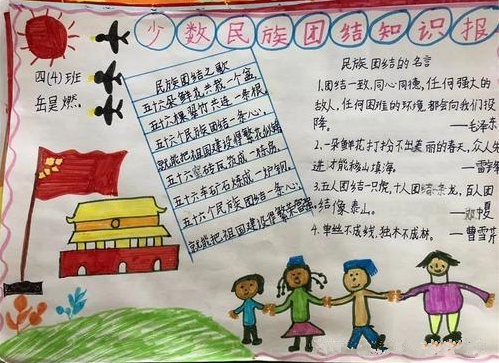 少数民族团结知识报
四(4)班
岳是燃.
民族团结之歌
五十六朵鲜花共栽一个盆,
五十六棵翠竹共连一条根
五十六个民族团结一条心,
就能把祖国建设得繁花似锦
五十六窑砖瓦
五十六车矿石炼成一炉钢.
五十六个民族团结一条心,
就能把祖国建设得繁荣富强
民族团结的名言
1.团结一致,同心同德,任何强大的
敌人,任何困难的环境都会向我们投
降. —毛泽东
2.一朵鲜花打扮不出美丽的春天,众人先
进才能移山填海. —雷锋
3.五人团结一只虎,十人团结 龙,百人团
结像泰山. —邓中夏
4.单丝不成线,独木不成林. —曹雪芹